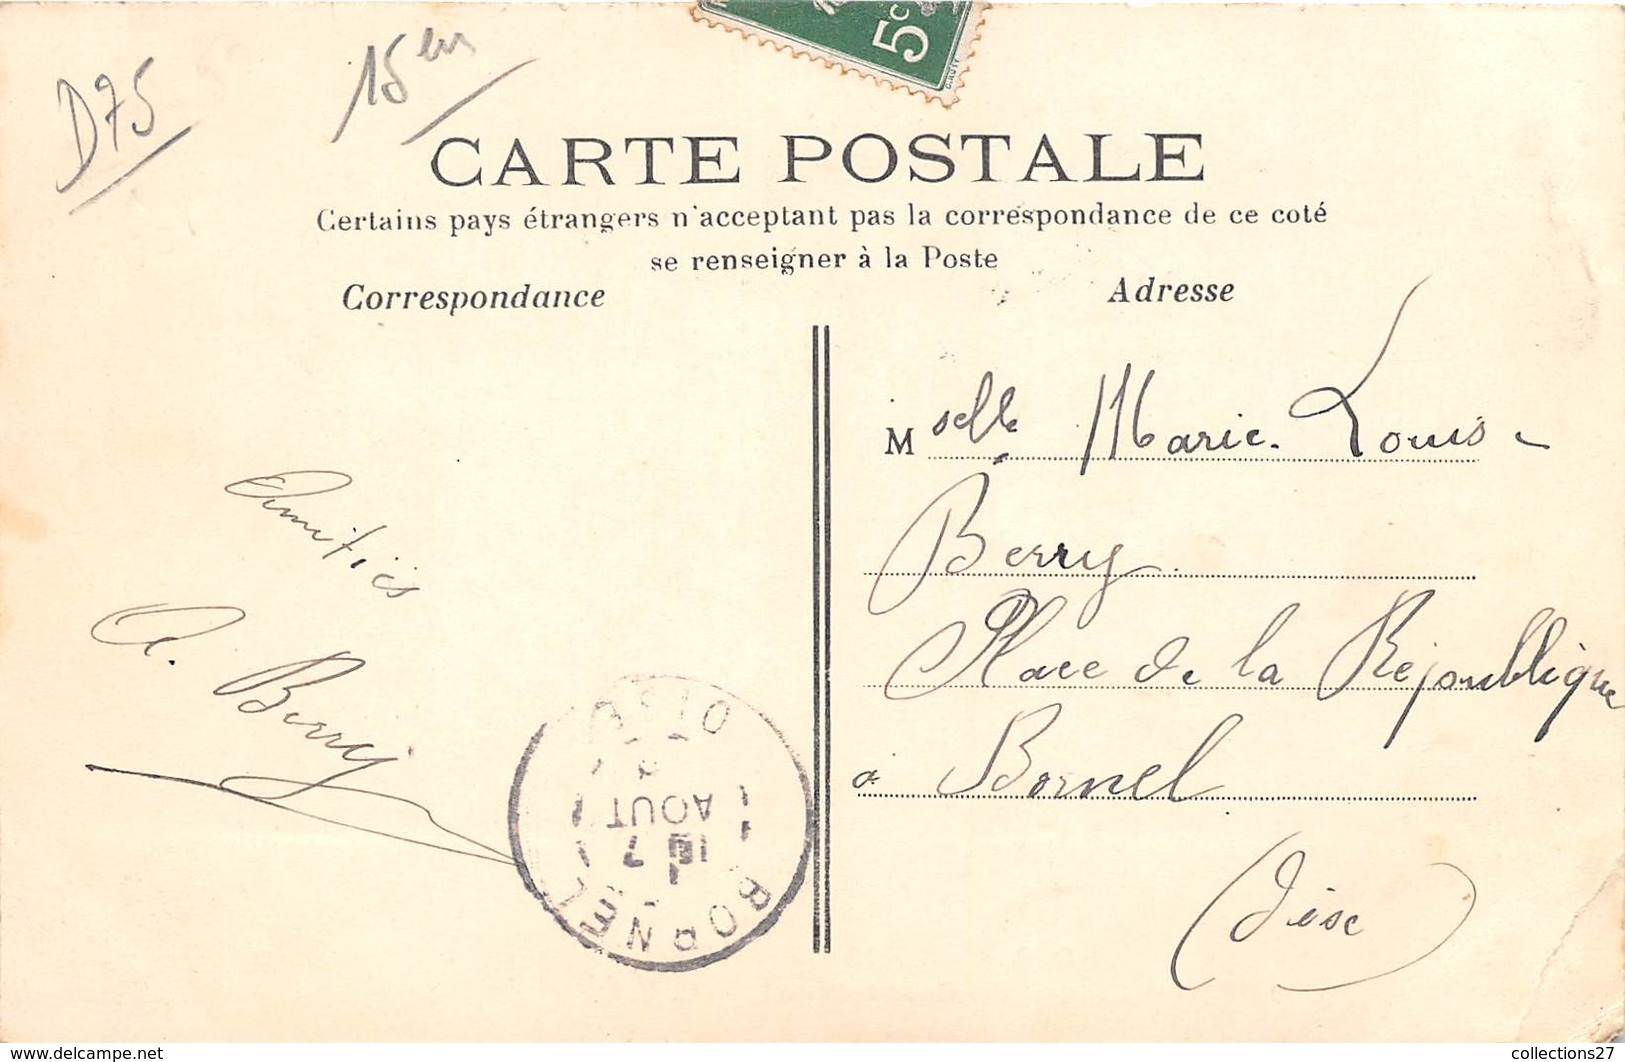 D75
15em
5c
CARTE POSTALE
Certains pays étrangers n'acceptant pas la correspondance de ce coté
se renseigner à la Poste
Correspondance
Adresse
Mselle Marie-Louise
Berry
Place de la République
à Bornel
(Oise)
Amitiés
A. Berry
BORNEL
OISE
7
AOUT
www.delcampe.net
collections27